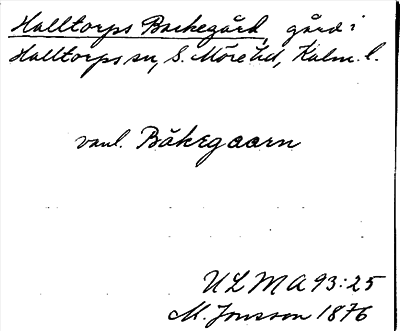 Halltorps Backegård, gård i
Halltorps sn, S. Möre hd, Kalm. l.
vanl. Båkegaarn
ULMA 93:25
M. Jonsson 1876